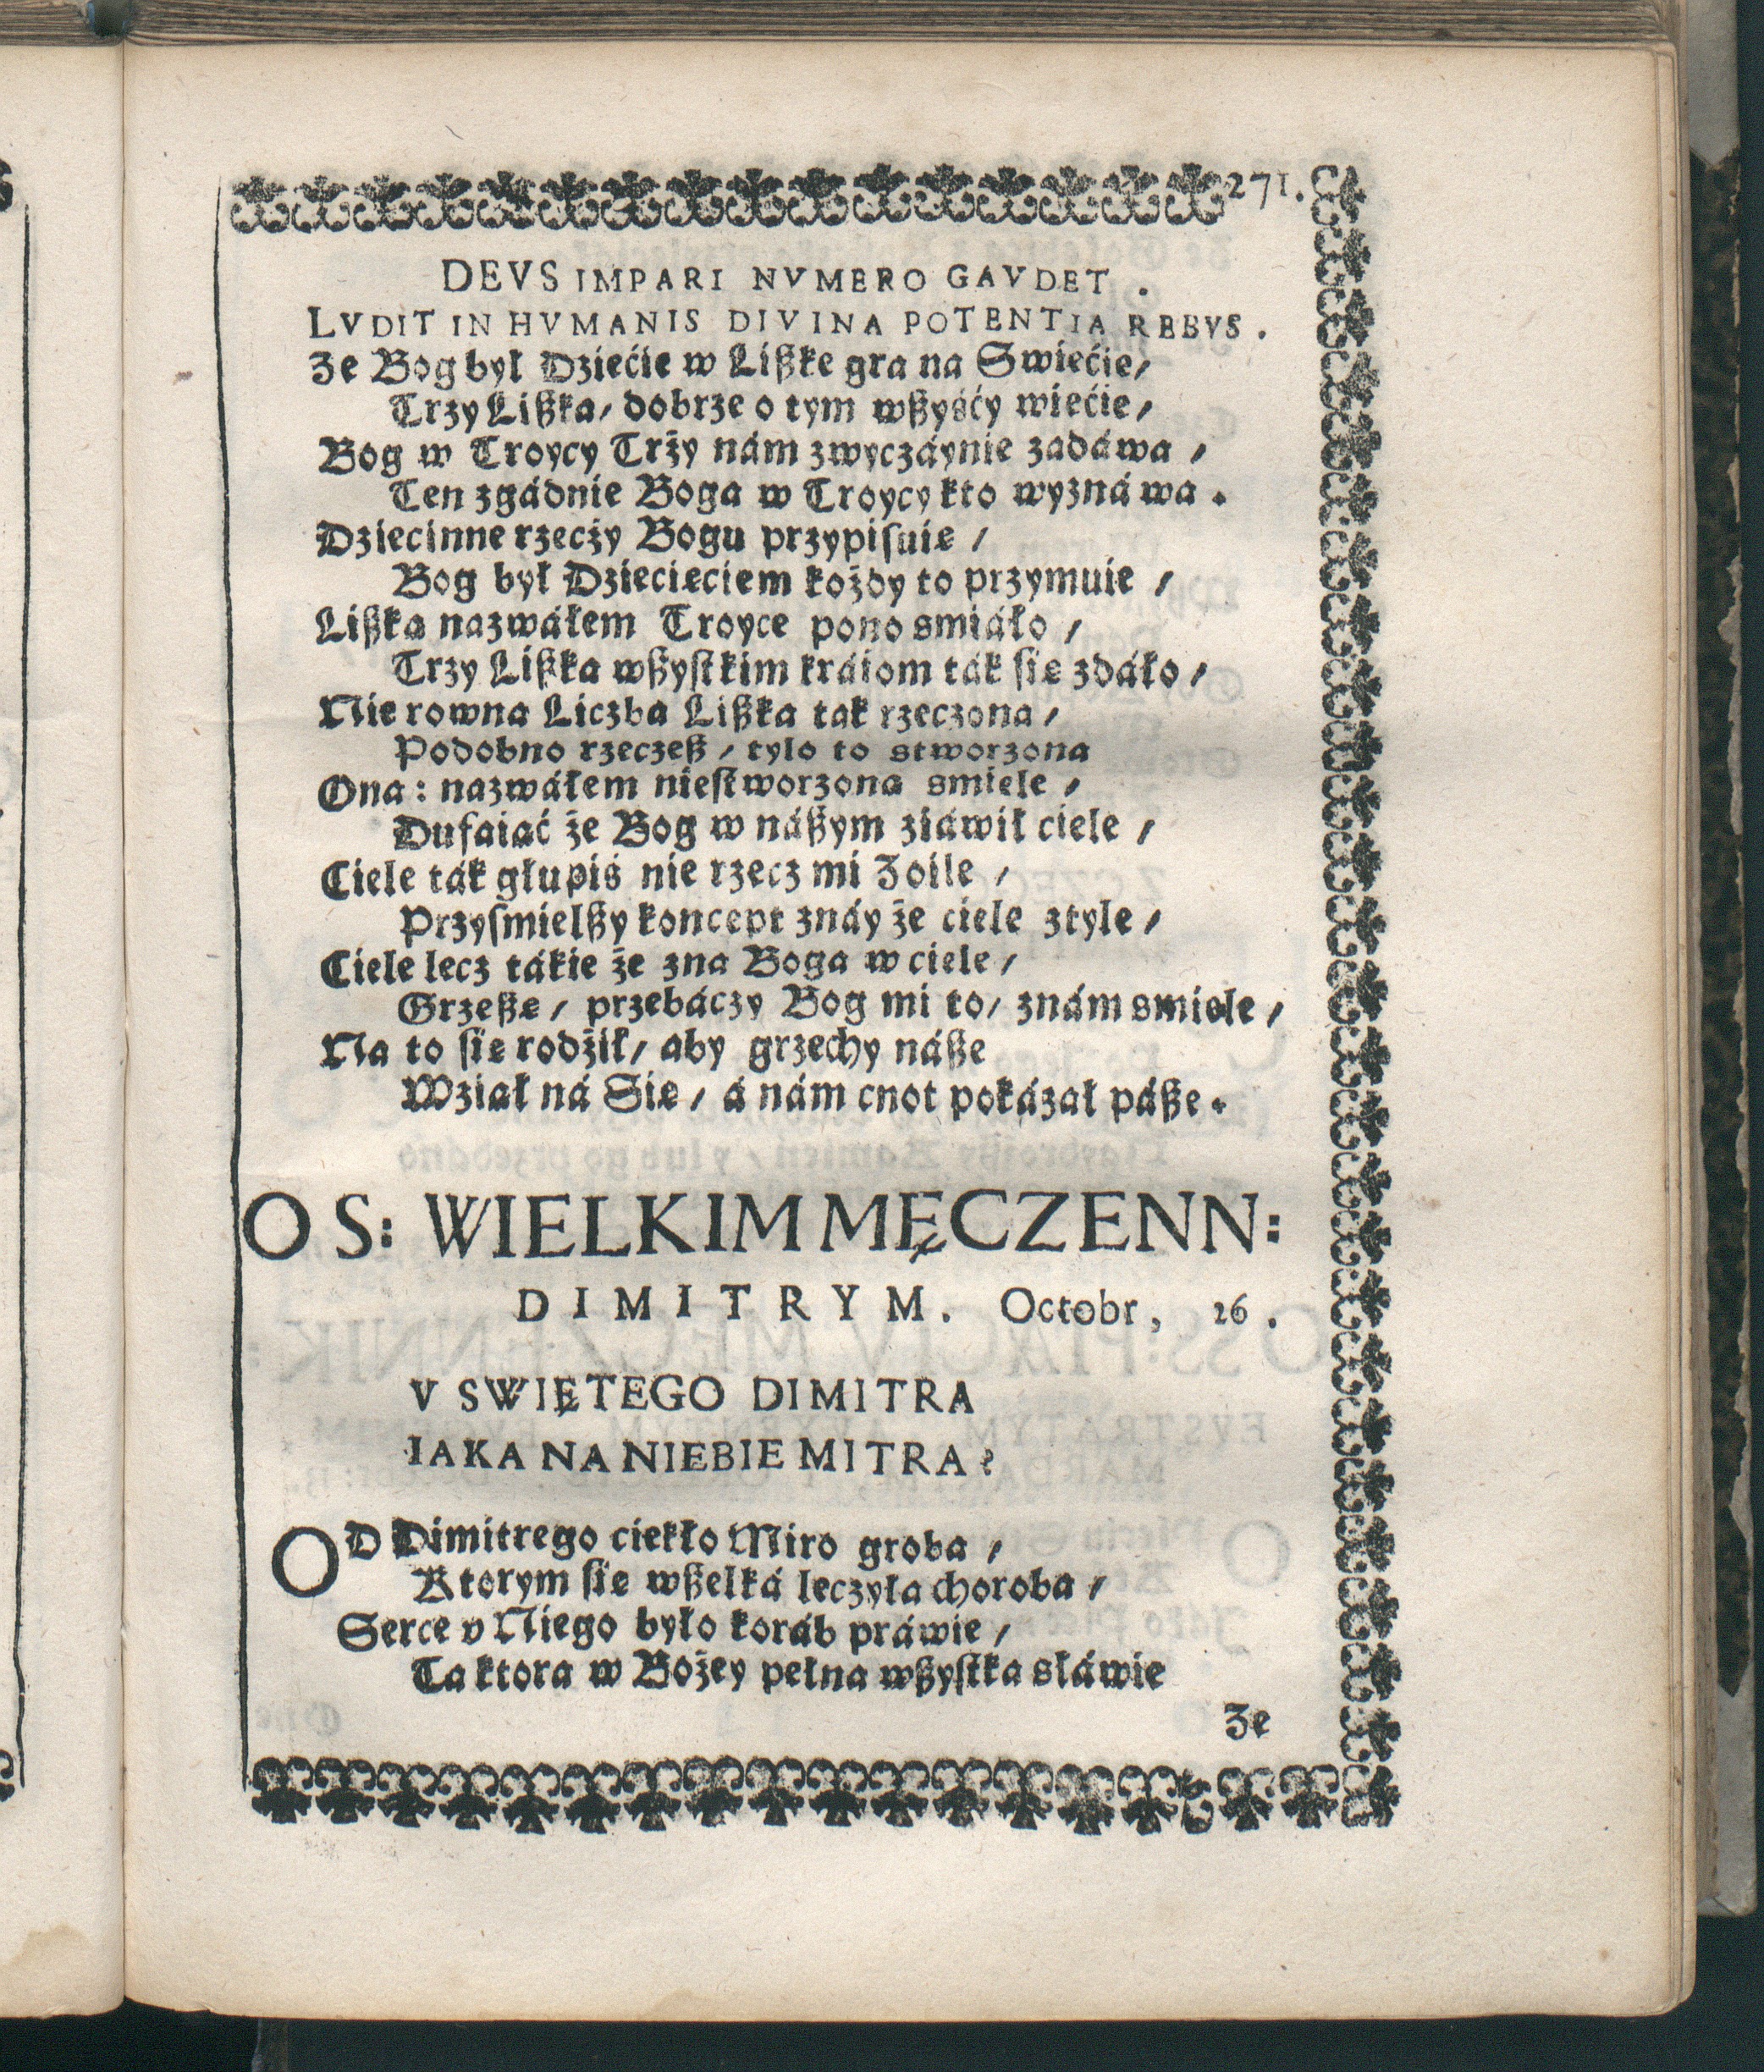 271.
DEVS IMPARI NVMERO GAVDET.
LVDIT IN HVMANIS DIVINA POTENTIA REBVS.
Ze Bog był Dziećie w Lißke gra na Swiećie/
Trzy Lißka/ dobrze o tym wßyśćy wiećie/
Bog w Troycy Trży nám zwyczáynie zadáwa/
Ten zgádnie Boga w Troycy kto wyznáwa.
Dziecinne rzeczy Bogu przypiſuię/
Bog był Dziecięciem kożdy to przymuie/
Lißką nazwałem Troyce pono smiáło/
Trzy Lißka wßyſtkim kráiom ták ſię zdáło/
Nie rowna Liczba Lißka tak rzeczona/
Podobno rzeczeß/ tylo to stworzona
Ona: nazwáłem nieſtworzona smiele/
Dufaiąć że Bog w náßym ziáwił ciele/
Ciele ták głupiś nie rzecz mi Zoile/
Przyſmielßy koncept znáy że ciele ztyle/
Ciele lecz tákie że zna Boga w ciele/
Grzeßę/ przebáczy Bog mi to/ znám smiele/
Na to ſię rodżił/ aby grzechy náße
Wziął ná Się/ á nám cnot pokázał páße.
O S: WIELKIM MĘCZENN:
DIMITRYM. Octobr, 26.
V SWIĘTEGO DIMITRA
IAKA NA NIEBIE MITRA?
OD Dimitrego ciekło Miro groba/
Ktorym ſię wßelká leczyła choroba/
Serce v Niego było koráb práwie/
Ta ktora w Bożey pełna wßyſtka słáwie
Ze